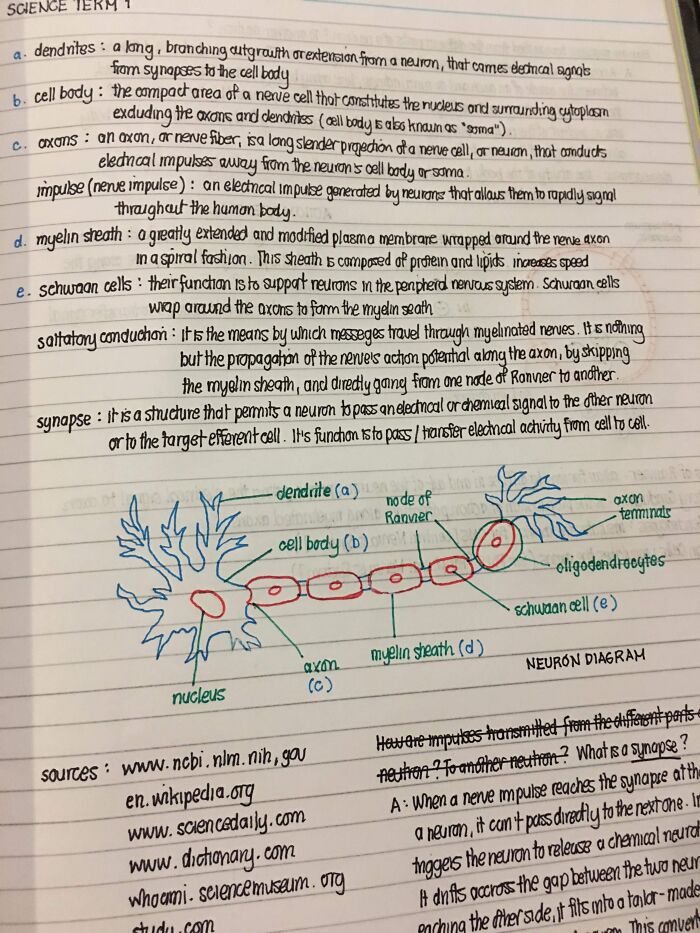 SCIENCE TERM 1
a. dendrites : a long, branching outgrowth or extension from a neuron, that carries electrical signals
from synapses to the cell body
b. cell body : the compact area of a nerve cell that constitutes the nucleus and surrounding cytoplasm
excluding the axons and dendrites (cell body is also known as "soma").
c. axons : an axon, or nerve fiber, is a long slender projection of a nerve cell, or neuron, that conducts
electrical impulses away from the neuron's cell body or soma.
impulse (nerve impulse) : an electrical impulse generated by neurons that allows them to rapidly signal
throughout the human body.
d. myelin sheath : a greatly extended and modified plasma membrane wrapped around the nerve axon
in a spiral fashion. This sheath is composed of protein and lipids increases speed
e. schwaan cells : their function is to support neurons in the peripheral nervous system. Schwaan cells
wrap around the axons to form the myelin seath
saltatory conduction : it is the means by which messeges travel through myelinated nerves. It is nothing
but the propagation of the nerve's action potential along the axon, by skipping
the myelin sheath, and directly going from one node of Ranvier to another.
synapse : it is a structure that permits a neuron to pass an electrical or chemical signal to the other neuron
or to the target efferent cell. It's function is to pass / transfer electrical activity from cell to cell.
dendrite (a)
node of
Ranvier
axon
terminals
cell body (b)
oligodendrocytes
schwaan cell (e)
myelin sheath (d)
axon
(c)
nucleus
NEURON DIAGRAM
sources : www.ncbi.nlm.nih,gov
en.wikipedia.org
www.sciencedaily.com
www.dictionary.com
whoami.sciencemuseum.org
study.com
How are impulses transmitted from the different parts
neutron? To another neutron? What is a synapse?
A: When a nerve impulse reaches the synapse at th
a neuron, it can't pass directly to the next one. I
triggers the neuron to release a chemical neuro
It drifts accross the gap between the two neur
eaching the other side, it fits into a tailor-made
This convert